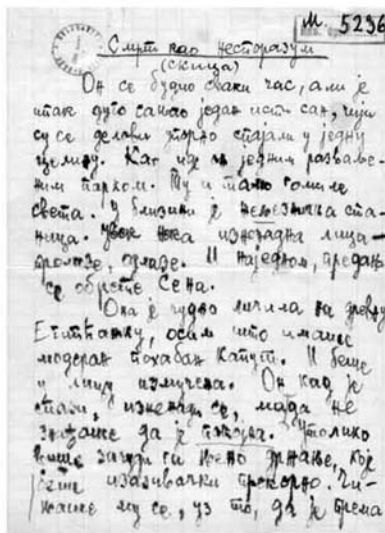 М. 5236
Смрт као неспоразум
(скица)
Он се будио сваки час, али је
ипак дуго сањао један исти сан, чији
су се делови упорно спајали у једну
целину. Као иде једним разваље-
ним парком. Ту и тамо гомиле
света. У близини је железничка ста-
ница. Увек нека изнурена лица
пролазе, одлазе. И наједном, преда њ
се обрете Сена.
Она је чудно личила на древну
Египћанку, осим што имаше
модеран похабан капут. И беше
у лицу измучена. Он кад је
спази, изненади се, мада не
знађаше да је покојна. Утолико
више зачуди га њено држање, које
беше изазивачки прекорно. Чи-
њаше му се, уз то, да је према